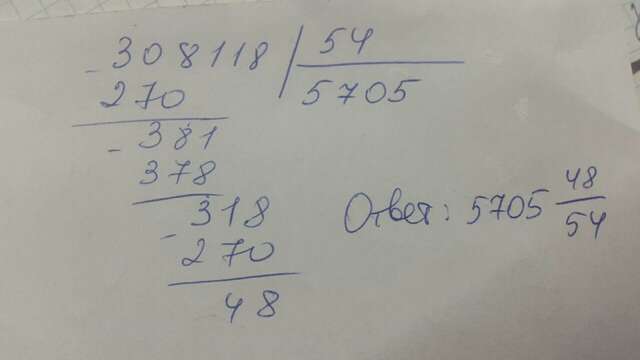 - 308118 | 54
270 5705
- 381
378
- 318
270
48
Ответ: 5705 48/54